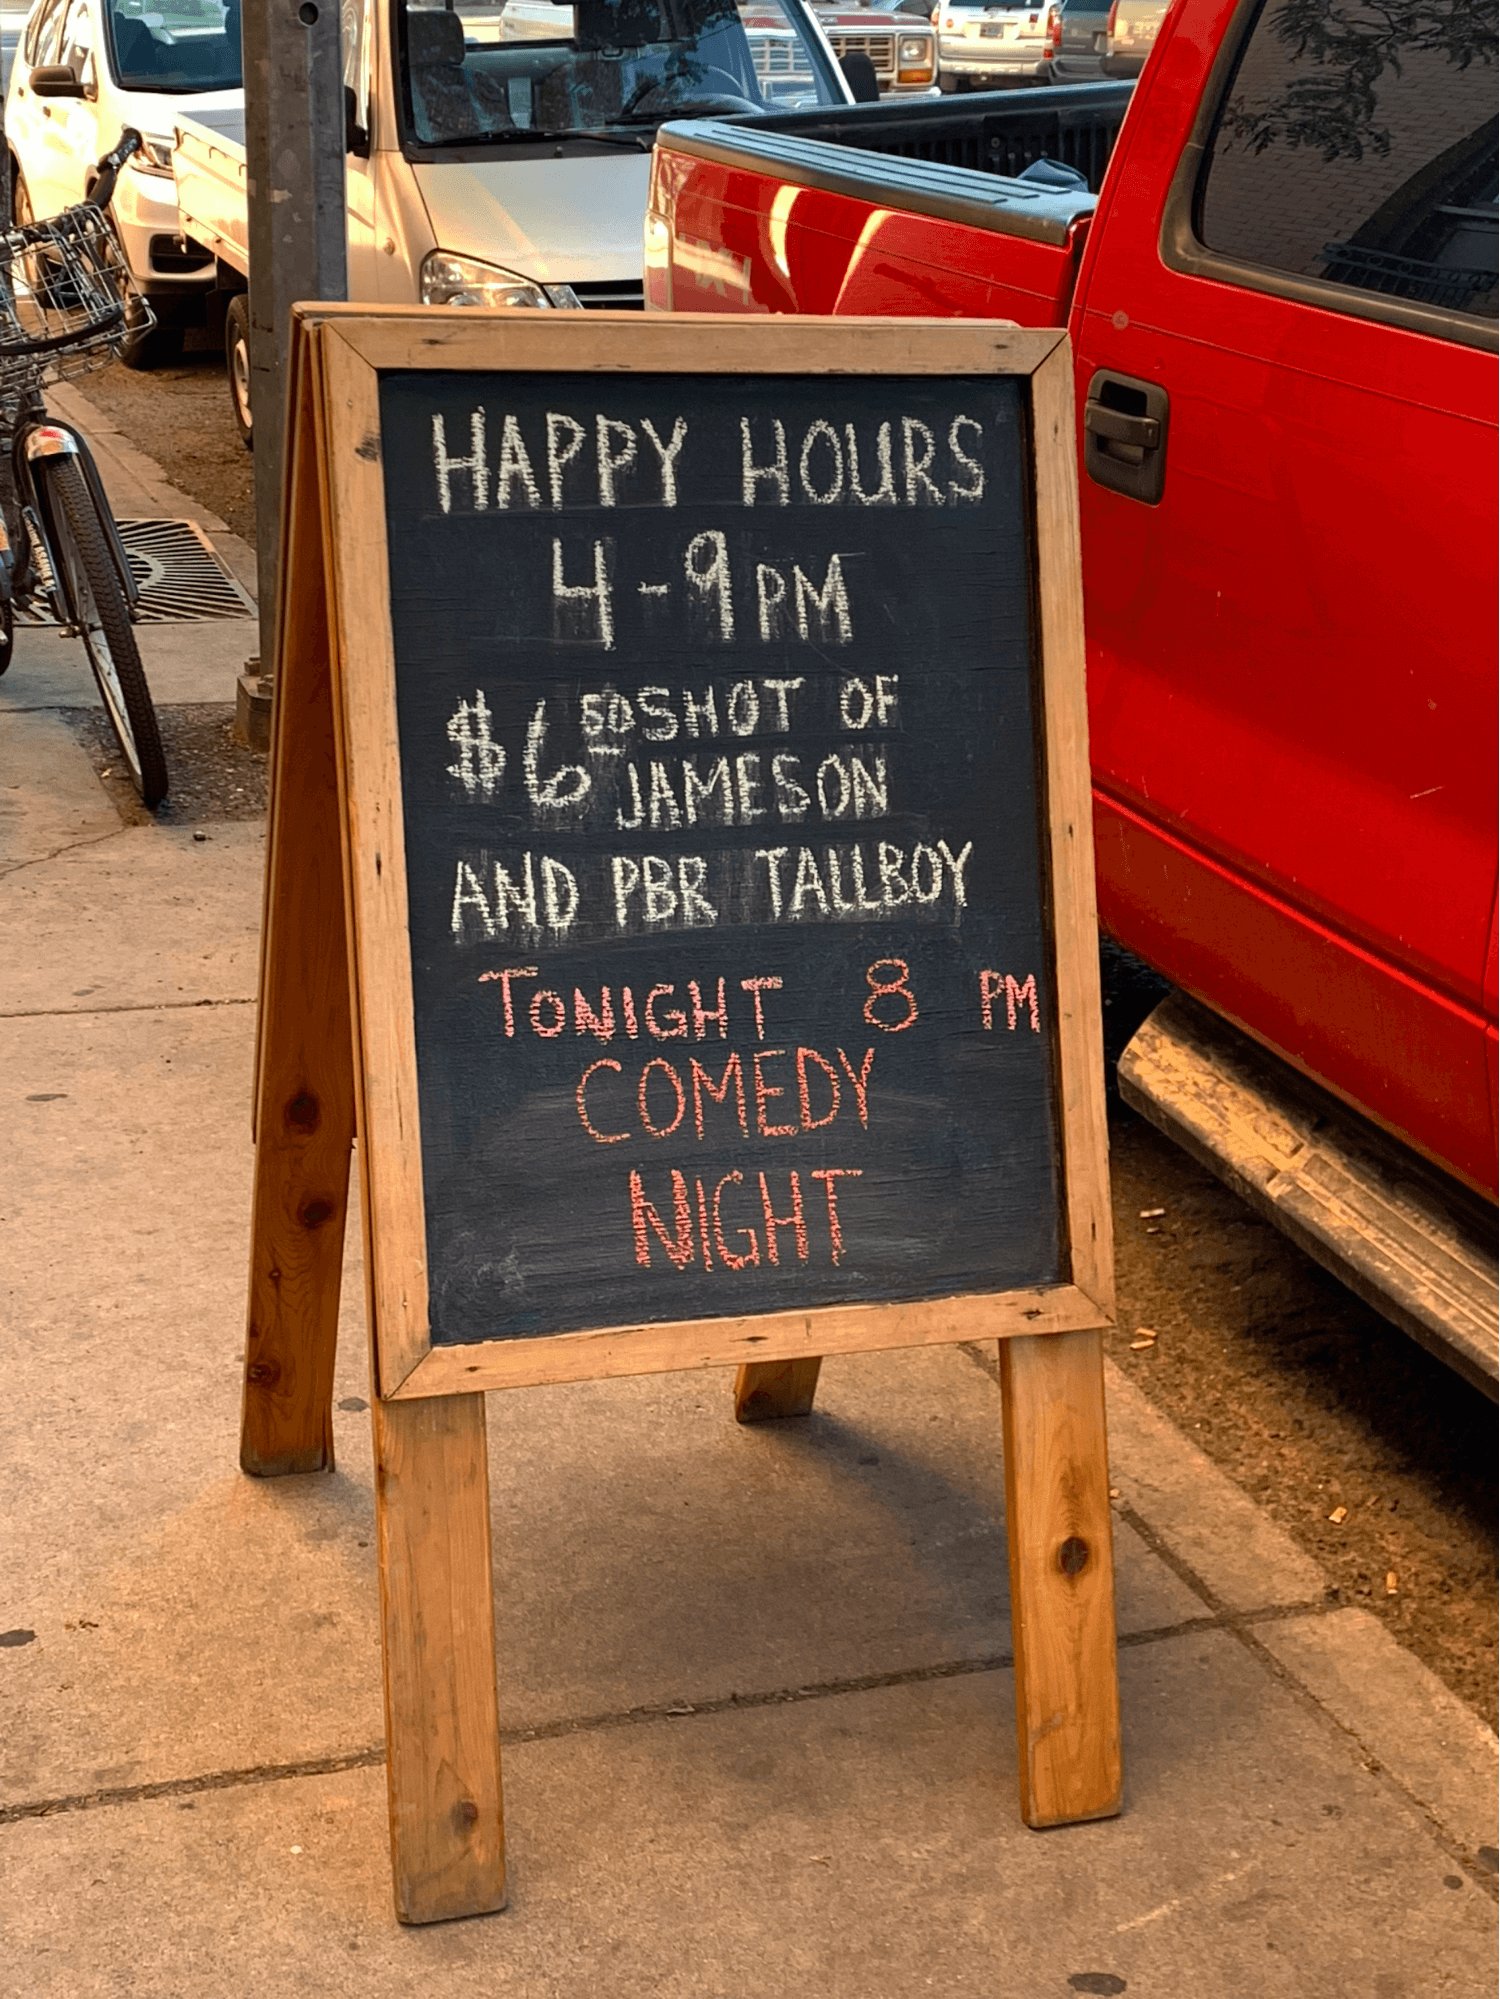 HAPPY HOURS
4-9PM
$6.50 SHOT OF
JAMESON
AND PBR TALLBOY
TONIGHT 8 PM
COMEDY
NIGHT